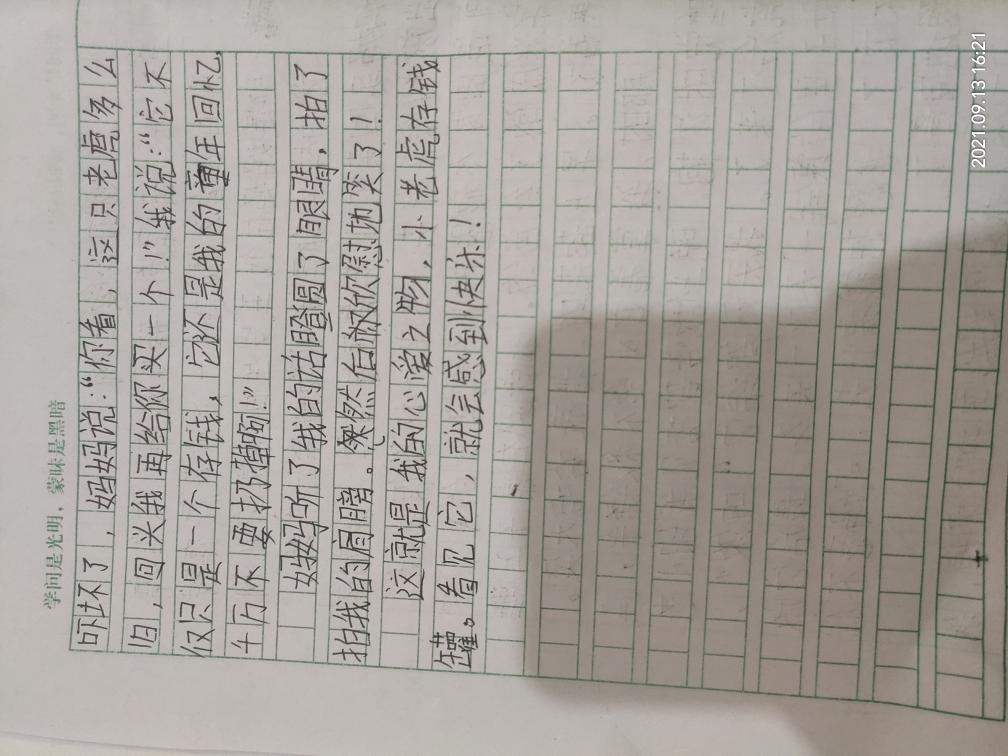 学问是光明，蒙昧是黑暗
吓坏了，妈妈说：“你看，这只老虎多么
旧，回头我再给你买一个！”我说：“它不
仅只是一个存钱，它还是我的童年回忆，
千万不要扔掉啊！”
妈妈听了我的话瞪圆了眼睛，拍了
拍我的肩膀。突然后欣慰地笑了！
这就是我的心爱之物，小老虎存钱
罐。看见它，就会感到快乐！
2021.09.13 16:21